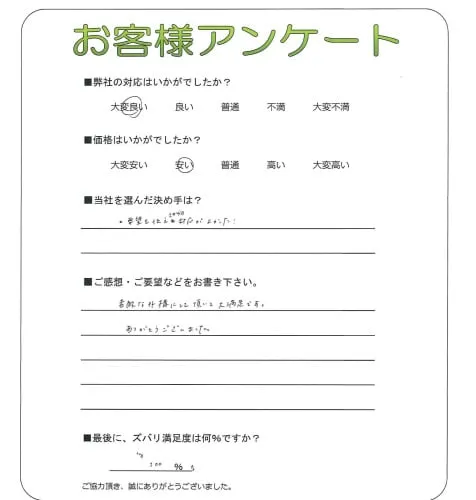 お客様アンケート
■弊社の対応はいかがでしたか？
大変良い 良い 普通 不満 大変不満
■価格はいかがでしたか？
大変安い 安い 普通 高い 大変高い
■当社を選んだ決め手は？
要望を伝え 対応がよかった！
■ご感想・ご要望などをお書き下さい。
素敵な外構にして頂いて大満足です。
ありがとうございました
■最後に、ズバリ満足度は何％ですか？
100 ％
ご協力頂き、誠にありがとうございました。